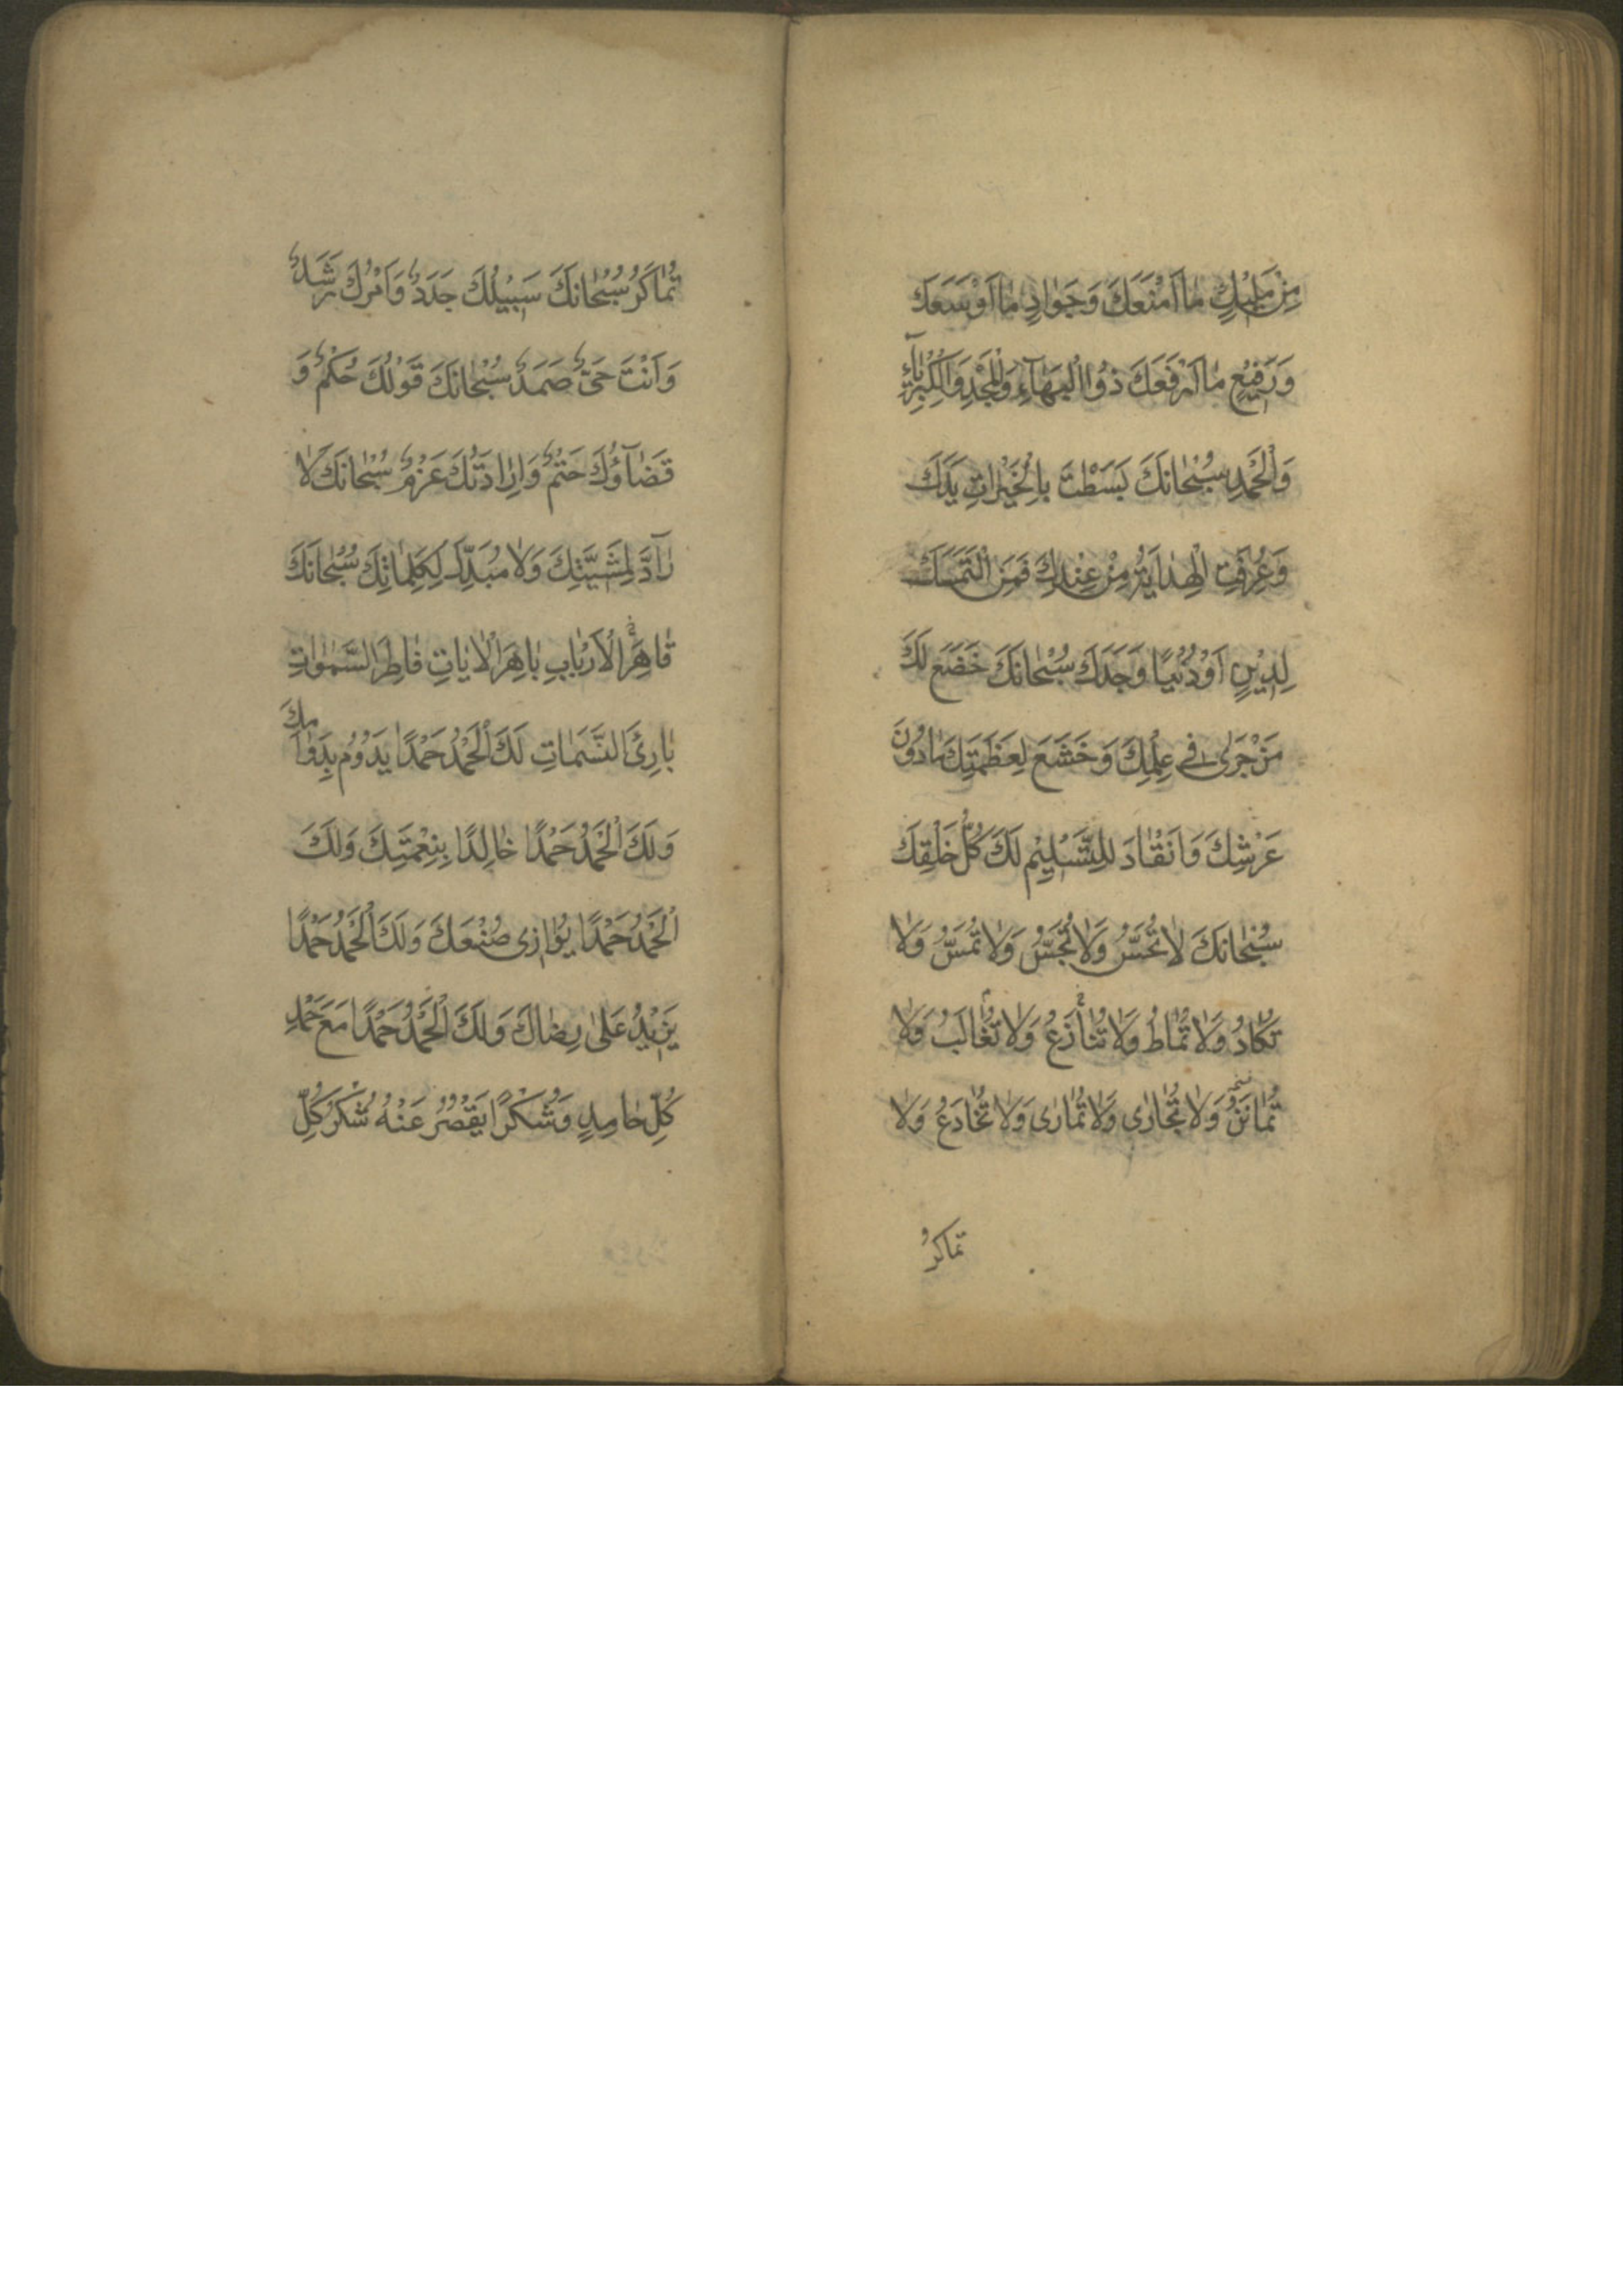 مِنْ مَلِيْكٍ مٰا اَمْنَعَكَ وَجَوٰادٍ مٰا اَوْسَعَكَ
وَرَفِيْعٍ مٰا اَرْفَعَكَ ذُوا الْبَهٰآءِ وَالْمَجْدِ وَالْكِبْرِيٰآءِ
وَالْحَمْدِ سُبْحٰانَكَ بَسَطْتَ بِالْخَيْرٰاتِ يَدَكَ
وَعُرِفَتِ الْهِدٰايَةُ مِنْ عِنْدِكَ فَمَنِ الْتَمَسَكَ
لِدِيْنٍ اَوْ دُنْيًا وَجَدَكَ سُبْحٰانَكَ خَضَعَ لَكَ
مَنْ جَرٰى فِى عِلْمِكَ وَخَشَعَ لِعَظَمَتِكَ مٰادُوْنَ
عَرْشِكَ وَانْقٰادَ لِلتَّسْلِيْمِ لَكَ كُلُّ خَلْقِكَ
سُبْحٰانَكَ لٰا تُحَسُّ وَلٰا تُجَسُّ وَلٰا تُمَسُّ وَلٰا
تُكٰادُ وَلٰا تُمٰاطُ وَلٰا تُنٰازَعُ وَلٰا تُغٰالَبُ وَلٰا
وَلٰا تُجٰارٰى وَلٰا تُمٰارٰى وَلٰا تُخٰادَعُ وَلٰا
تماكرُ
تُمٰاكَرُ سُبْحٰانَكَ سَبِيْلُكَ جَدَدٌ وَاَمْرُكَ رَشَدٌ
وَاَنْتَ حَىٌّ صَمَدٌ سُبْحٰانَكَ قَوْلُكَ حُكْمٌ وَ
قَضٰآؤُكَ حَتْمٌ وَاِرٰادَتُكَ عَزْمٌ سُبْحٰانَكَ لٰا
رٰآدَّ لِمَشِيَّتِكَ وَلٰا مُبَدِّلَ لِكَلِمٰاتِكَ سُبْحٰانَكَ
قٰاهِرَ الْاَرْبٰابِ بٰاهِرَ الْاٰيٰاتِ فٰاطِرَ السَّمٰوٰاتِ
بٰارِئَ النَّسَمٰاتِ لَكَ الْحَمْدُ حَمْدًا يَدُوْمُ بِدَوٰامِكَ
وَلَكَ الْحَمْدُ حَمْدًا خٰالِدًا بِنِعْمَتِكَ وَلَكَ
الْحَمْدُ حَمْدًا يُوٰازِى صُنْعَكَ وَلَكَ الْحَمْدُ حَمْدًا
يَزِيْدُ عَلٰى رِضٰاكَ وَلَكَ الْحَمْدُ حَمْدًا مَعَ حَمْدِ
كُلِّ حٰامِدٍ وَشُكْرًا يَقْصُرُ عَنْهُ شُكْرُ كُلِّ